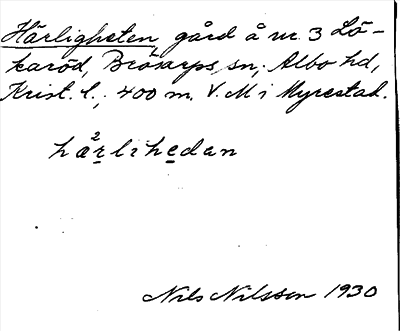 Härligheten, gård å nr. 3 Lö-
karöd, Brösarps sn, Albo hd,
Krist. l., 400 m. V. M i Myrestad.
hä²rlihedan
Nils Nilsson 1930